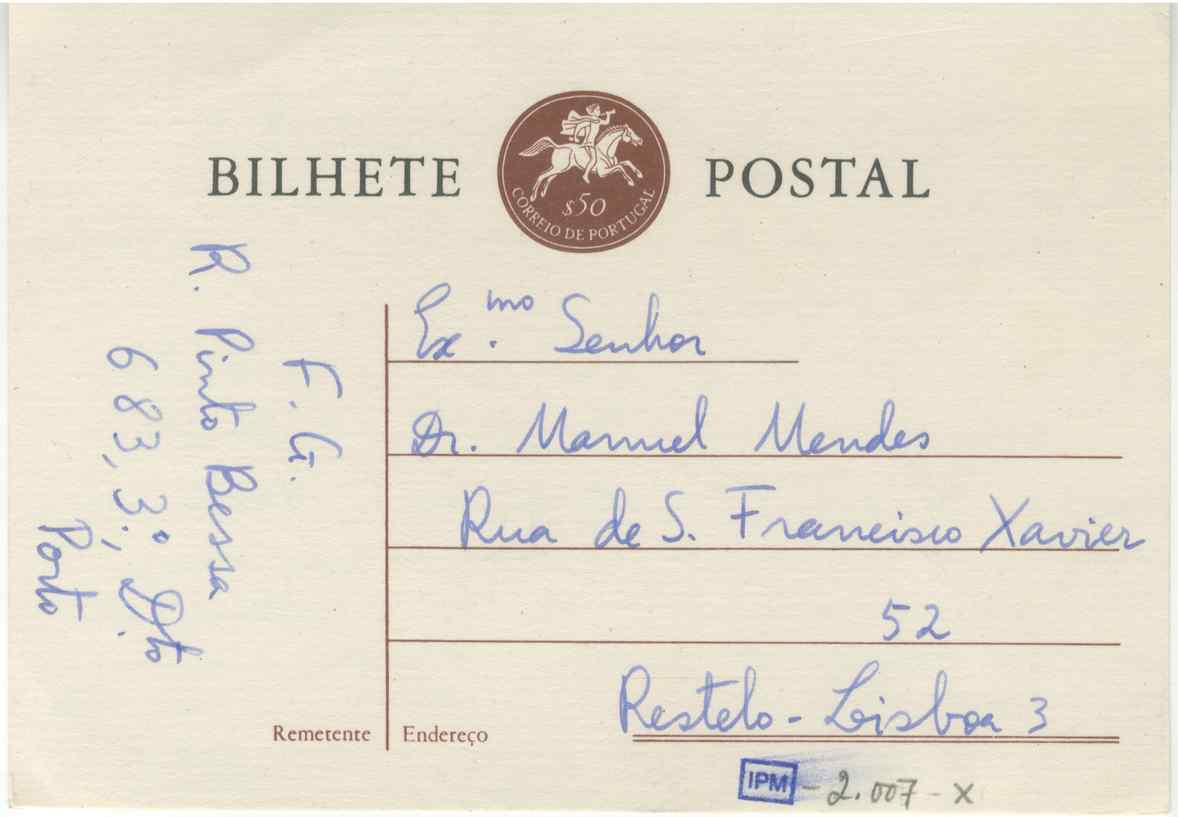 BILHETE POSTAL
$50
CORREIO DE PORTUGAL
F. G.
R. Pinto Bessa
683, 3.º Dto
Porto
Ex.mo Senhor
Dr. Manuel Mendes
Rua de S. Francisco Xavier
52
Restelo - Lisboa 3
Remetente
Endereço
IPM - 2.007 - X